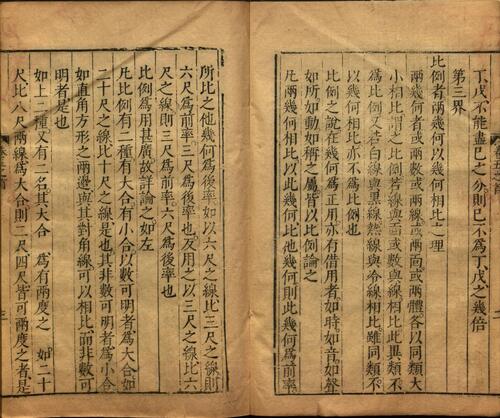 丁戊不能盡己之分則己不為丁戊之幾倍
第三界
比例者兩幾何以幾何相比之理
兩幾何者或兩數或兩線或兩面或兩體各以同類大
小相比謂之比例若線與面或數與線相比此異類不
為比例又若白線與黑線熱線與冷線相比雖同類不
以幾何相比亦不為比例也
比例之說在幾何為正用亦有借用者如時如音如聲
如所如動如稱之屬皆以比例論之
凡兩幾何相比以此幾何比他幾何則此幾何為前率
所比之他幾何為後率如以六尺之線比三尺之線則
六尺為前率三尺為後率也反用之以三尺之線比六
尺之線則三尺為前率六尺為後率也
比例為用甚廣故詳論之如左
凡比例有二種有大合有小合以數可明者為大合如
二十尺之線比十尺之線是也其非數可明者為小合
如直角方形之兩邊與其對角線可以相比而非數可
明者是也
如上二種又有二名其大合 為有兩度之 如二十
尺比八尺兩線為大合則二尺四尺皆可兩度之者是